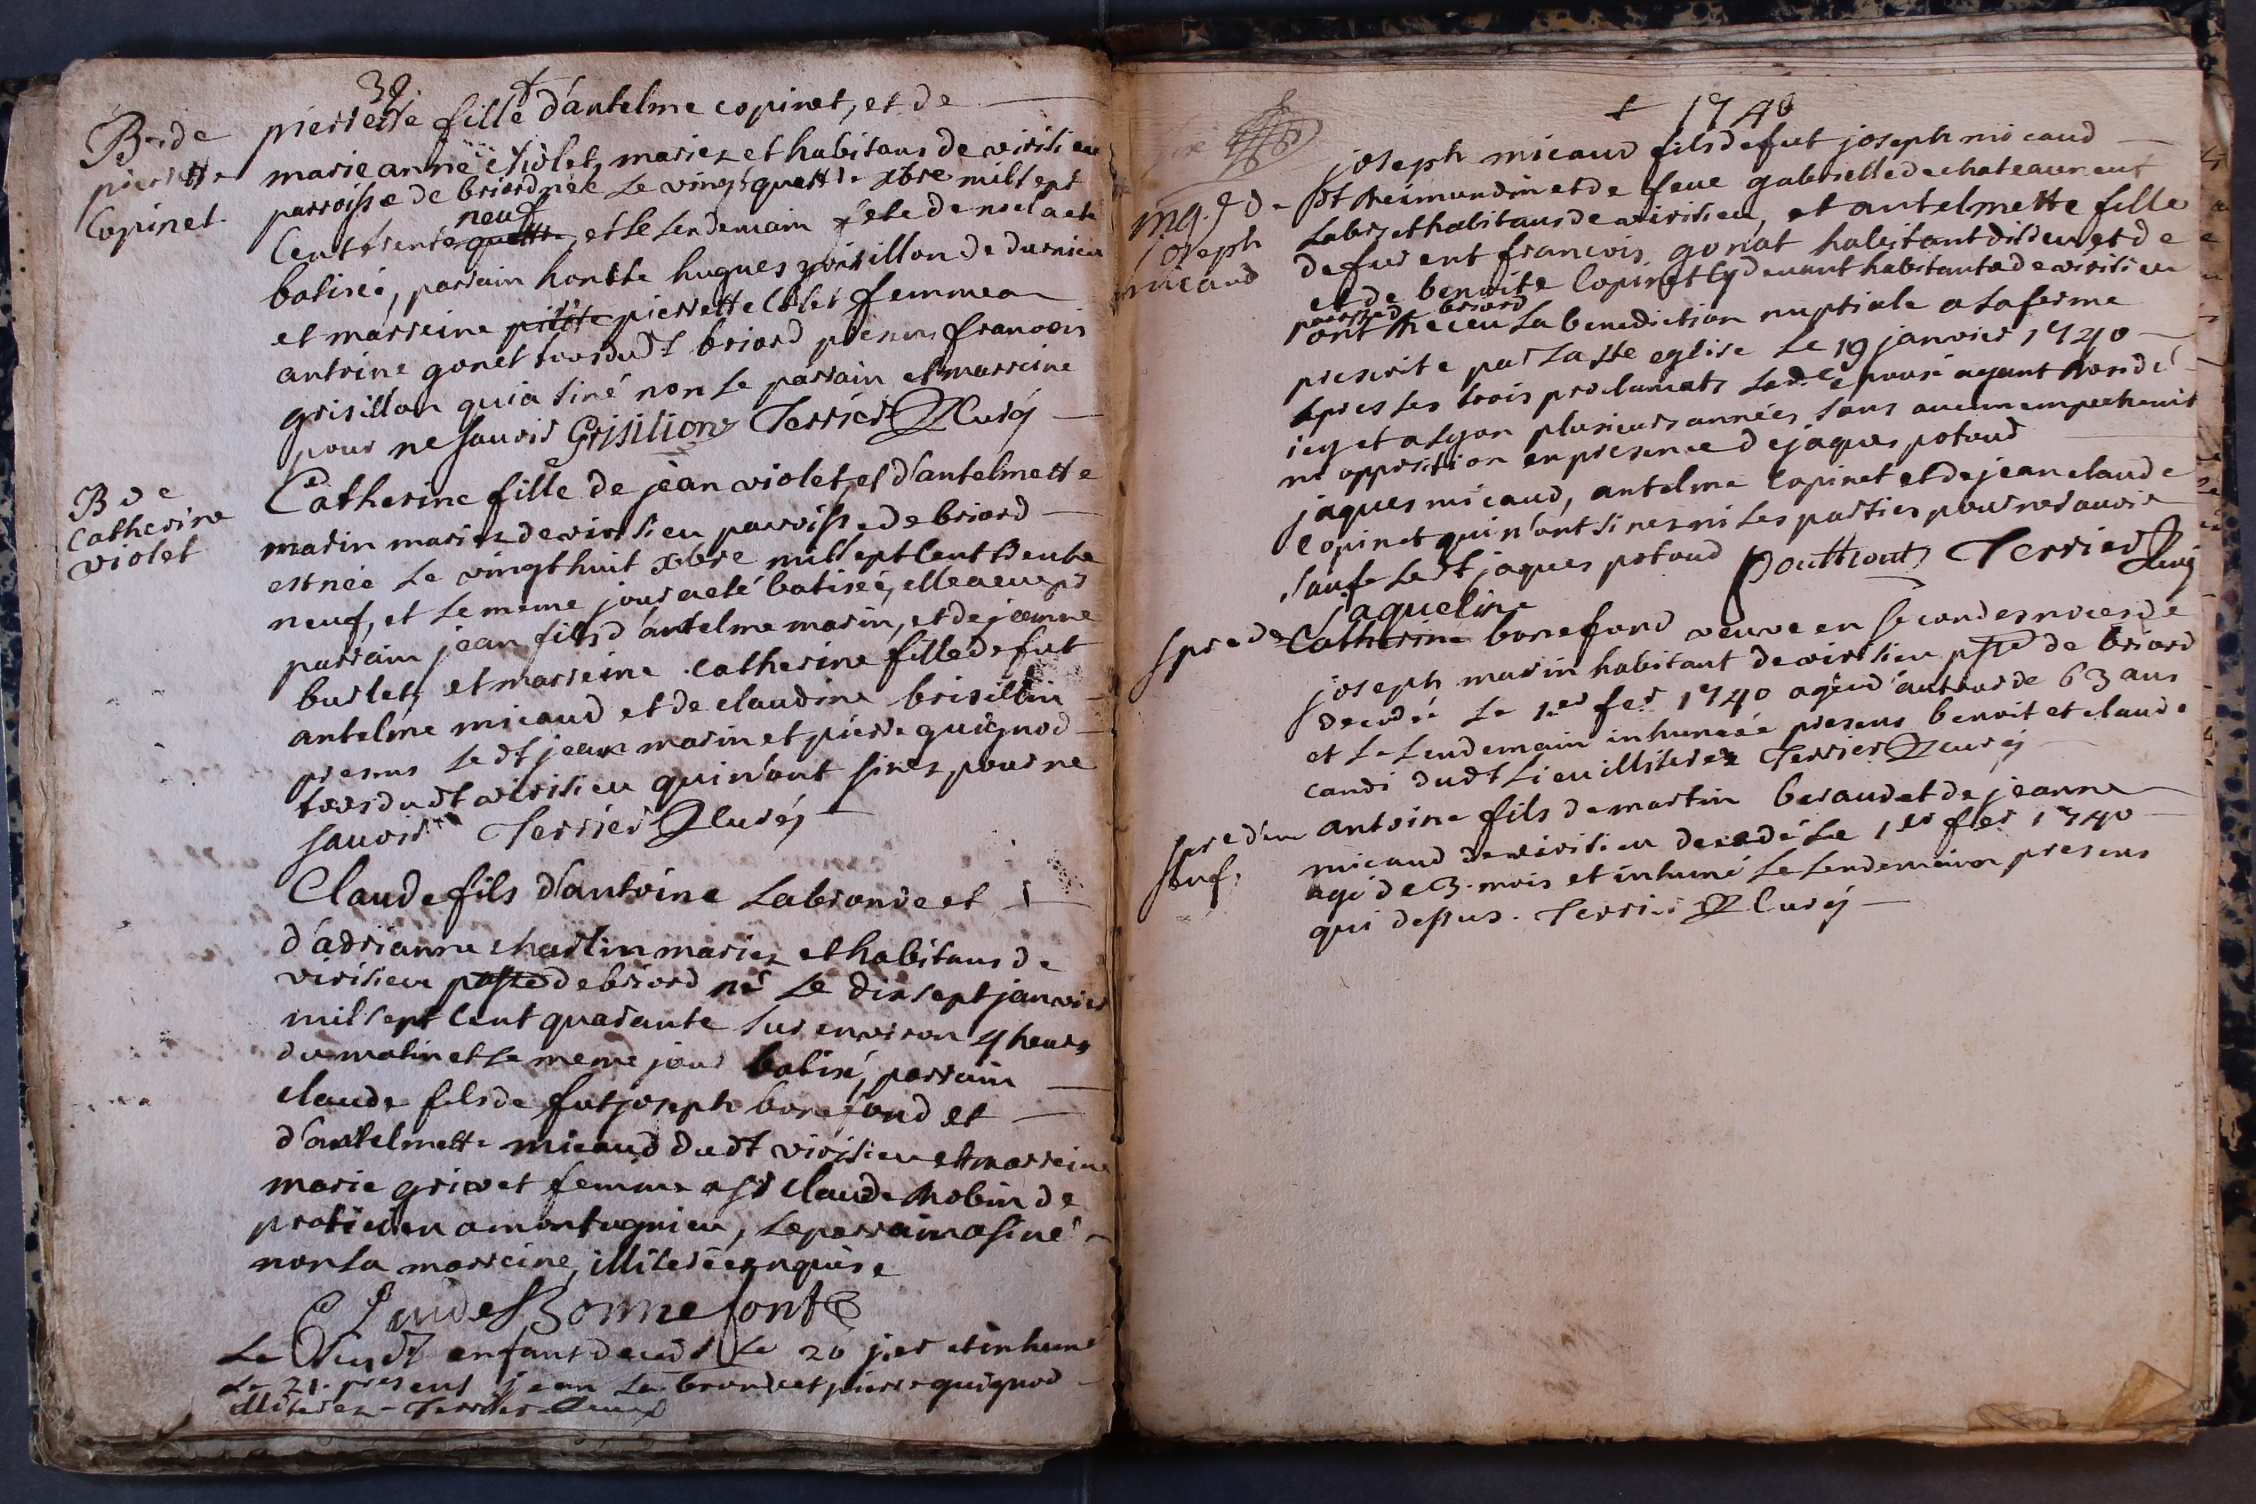 39 +
B. de pierrette Copinet.
pierrette fille d'antelme copinet, et de
marie anne violet, mariez et habitans de virisieu
parroisse de briord née le vingt quattre xbre mil sept
Cent trente quattre neuf, et le lendemain fete de noel a eté
batisée, parrain honete hugues grisillon de durnieu
et marreine pierrette pierrette Colet femme a
antoine gonet tous dudt briord presens francois
grisillon qui a siné non le parrain et marreine
pour ne savoir Grisilion Terrier Curé
B de Catherine violet
Catherine fille de jean violet et d'antelmette
marin mariez de virisieu parroisse de briord
est née le vingt huit xbre mil sept Cent trente
neuf, et le meme jour a eté batisée, elle a eu pr
parrain jean fils d'antelme marin, et de jeanne
burlet, et marreine catherine fille de fut
antelme micaud et de claudine brisillon
presens le dt jean marin et pierre guignod
tous dudt virisieu qui n'ont sinez pour ne
savoir Terrier Curé
Claude fils d'antoine Labronde et
d'adrianne charlin mariez et habitans de
virisieu psse de briord né Le dix sept janvier
mil sept Cent quarante sur environ 4 heures
du matin et le meme jour batisé, parrain
claude fils de fut joseph bonefond et
d'antelmette micaud dudt virisieu et marreine
marie grivet femme a sr Claude Robin de
praticien a montagnieu, le parrain a siné
non la marreine, illiterée enquise
Claude Bonnefont
Le susdt enfant decedé le 20 jier et inhumé
le 21. presens jean La bronde et pierre guignod
illiterez - Terrier Curé
+ 1740
mg. de joseph micaud
joseph micaud fils de fut joseph micaud
dt Reimundin et de feue gabrielle de chateauneuf
Labr et habitans de virisieu, et antelmette fille
de furent francois gonat habitant dudt lieu et de
et de benoite Copinet cy devant habitante de virisieu
parroisse de briord
ont receu La benediction nuptiale a la forme
prescrite par La ste eglise Le 19 janvier 1740
apres les trois proclamats Le dt epoux ayant residé
icy et a Lyon plusieurs années, sans aucun empechemt
ni opposition en presence de jaques potoud
jaques micaud, antelme Copinet et de jean claude
Copinet qui n'ont sinez ni Les parties pour ne savoir
sauf Le dt jaques potoud Pouthout Terrier Curé
spre de
Catherine jaqueline bonefond veuve en secondes noces de
joseph marin habitant de virisieu psse de briord
decedée Le 1er fer 1740 agée d'autour de 63 ans
et Le Lendemain inhumée presens benoit et claude
candi dudt Lieu illiterez Terrier Curé
spre d'un enf.
antoine fils de martin beraud et de jeanne
micaud de virisieu decedé Le 1er fer 1740
agé de 3. mois et inhumé Le Lendemain presens
qui dessus. Terrier Curé